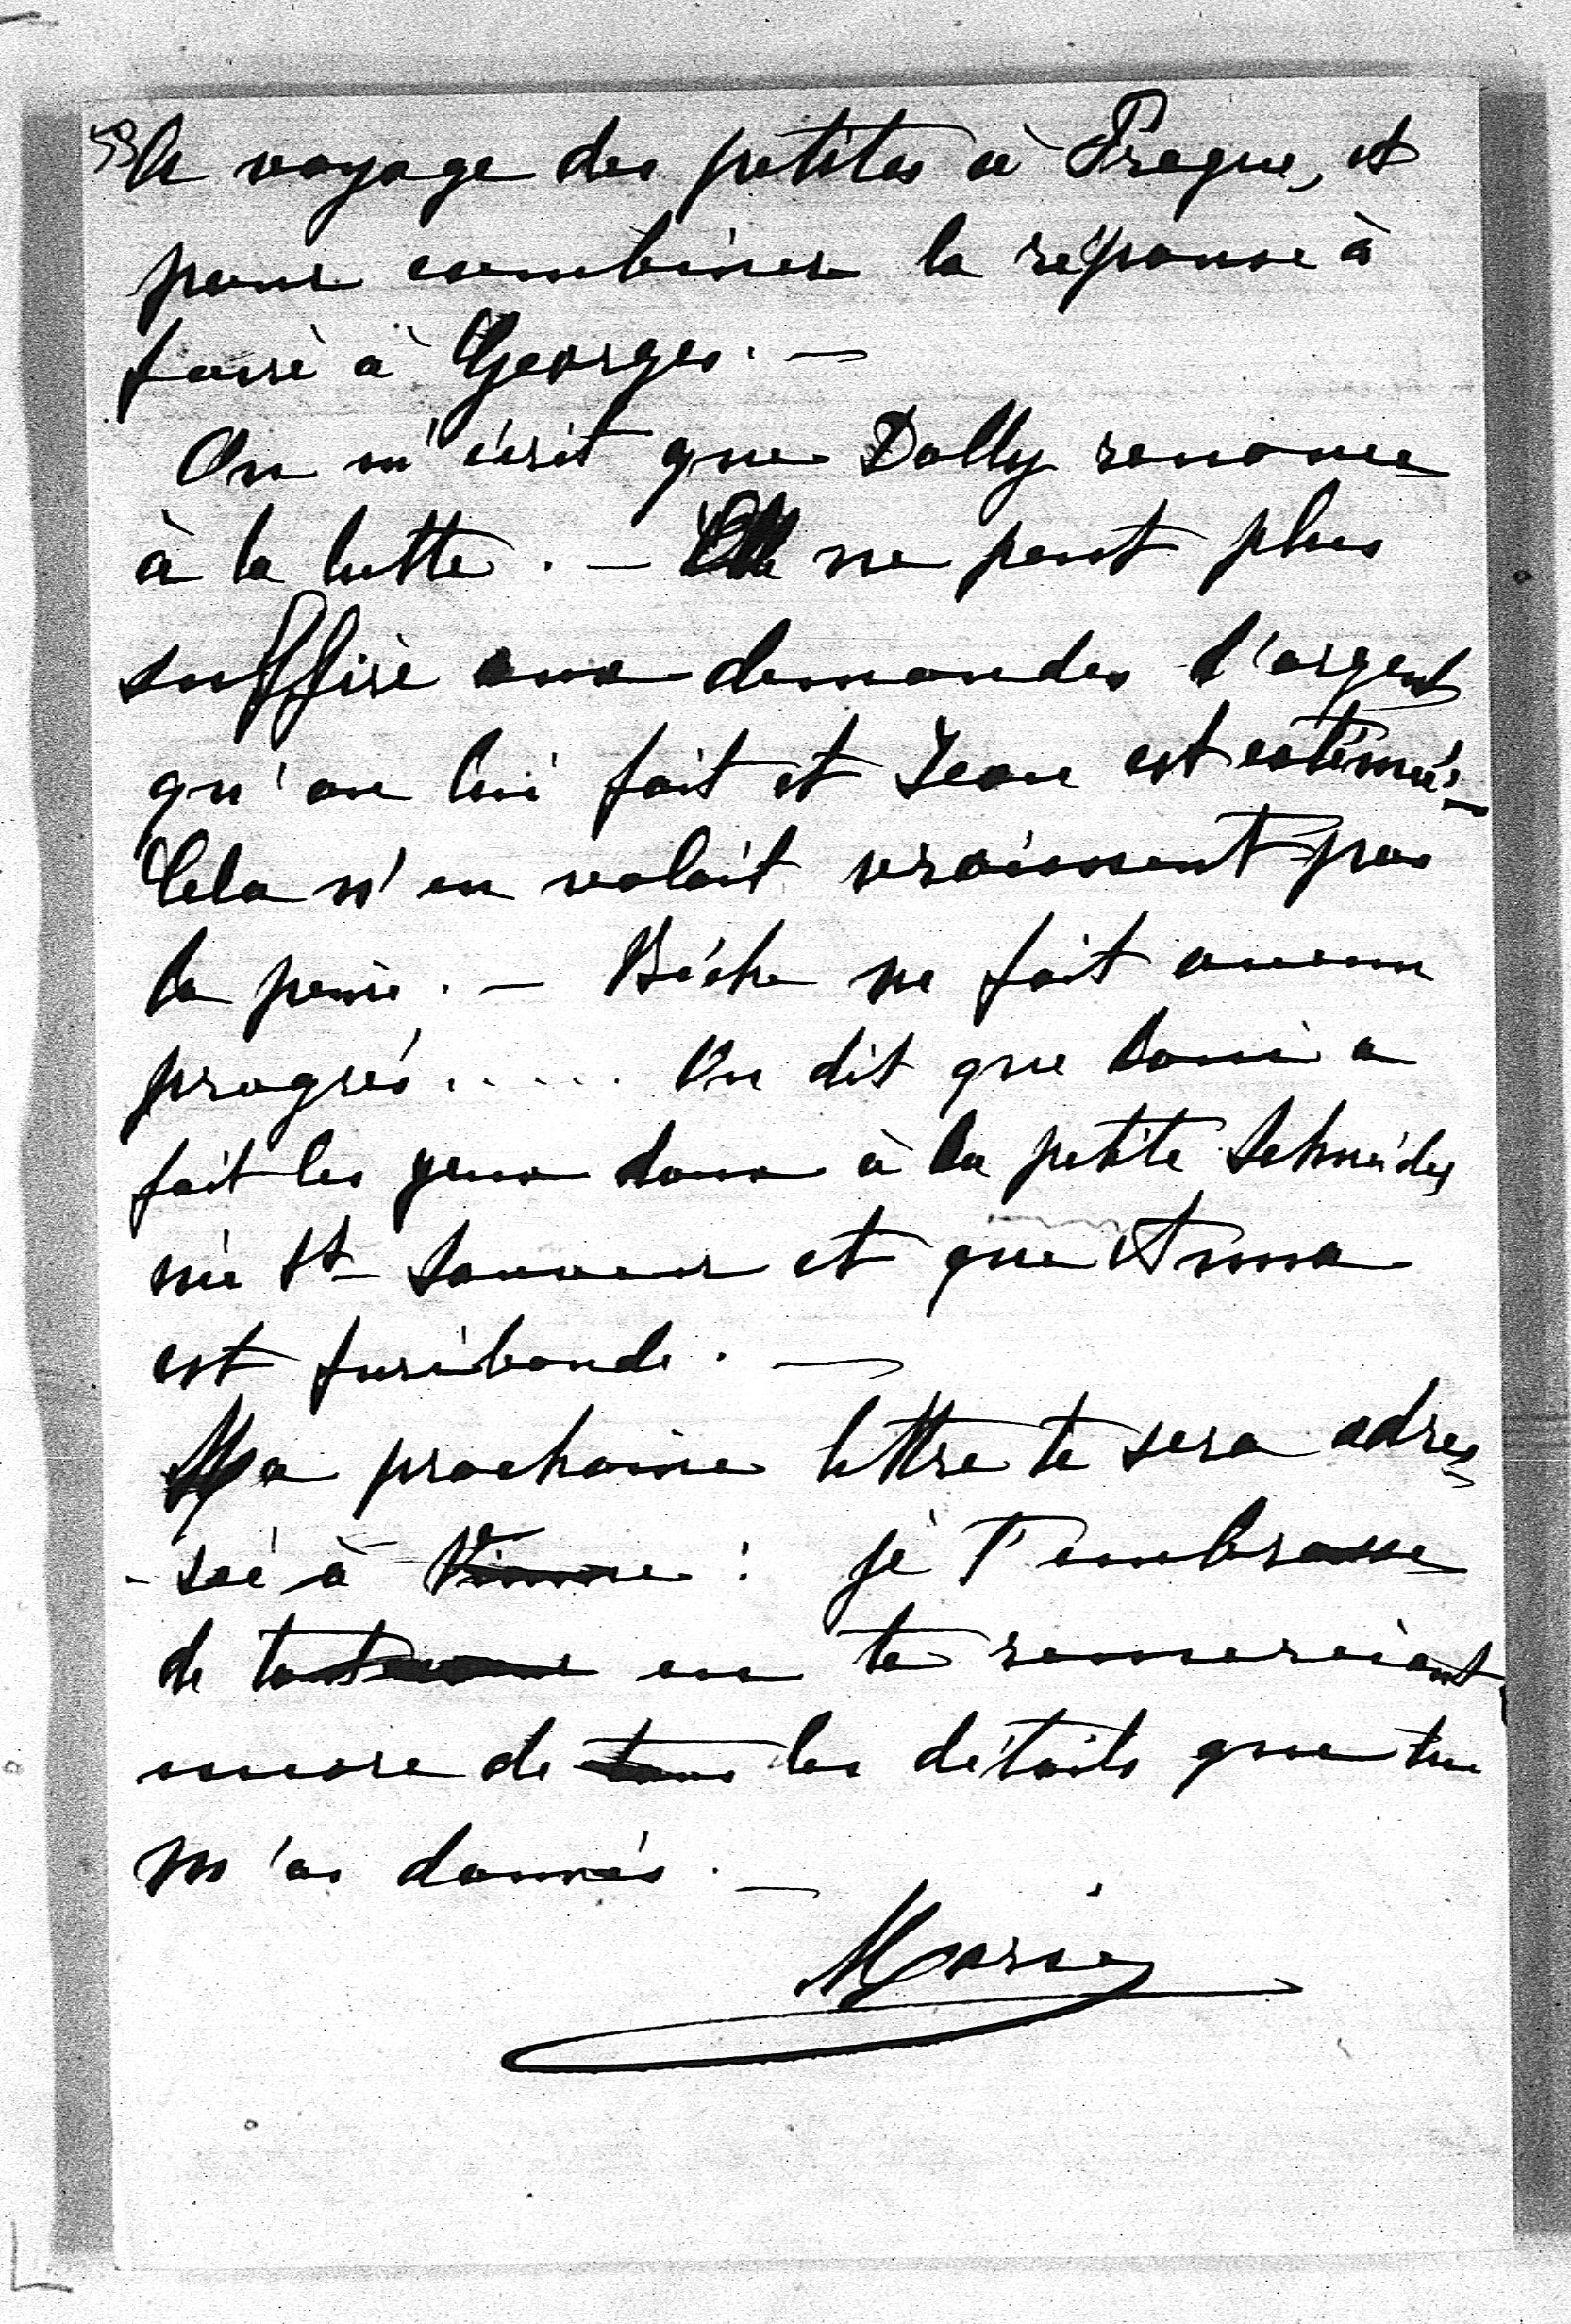 le voyage des petites à Prague, et
pour combiner la réponse à
faire à Georges. —
On m'écrit que Dolly renonce
à la lutte. — Elle ne peut plus
suffire aux demandes d'argent
qu'on lui fait et Jean est exténué. —
Cela n'en valait vraiment pas
la peine. — Biche ne fait aucun
progrès..... On dit que Boni a
fait les yeux doux à la petite Schneider
née St Sauveur et que Anna
est furibonde. —
Ma prochaine lettre te sera adres-
-sée à Vienne : je t'embrasse
de tout cœur en te remerciant
encore de tous les détails que tu
m'as donnés. —
Marie